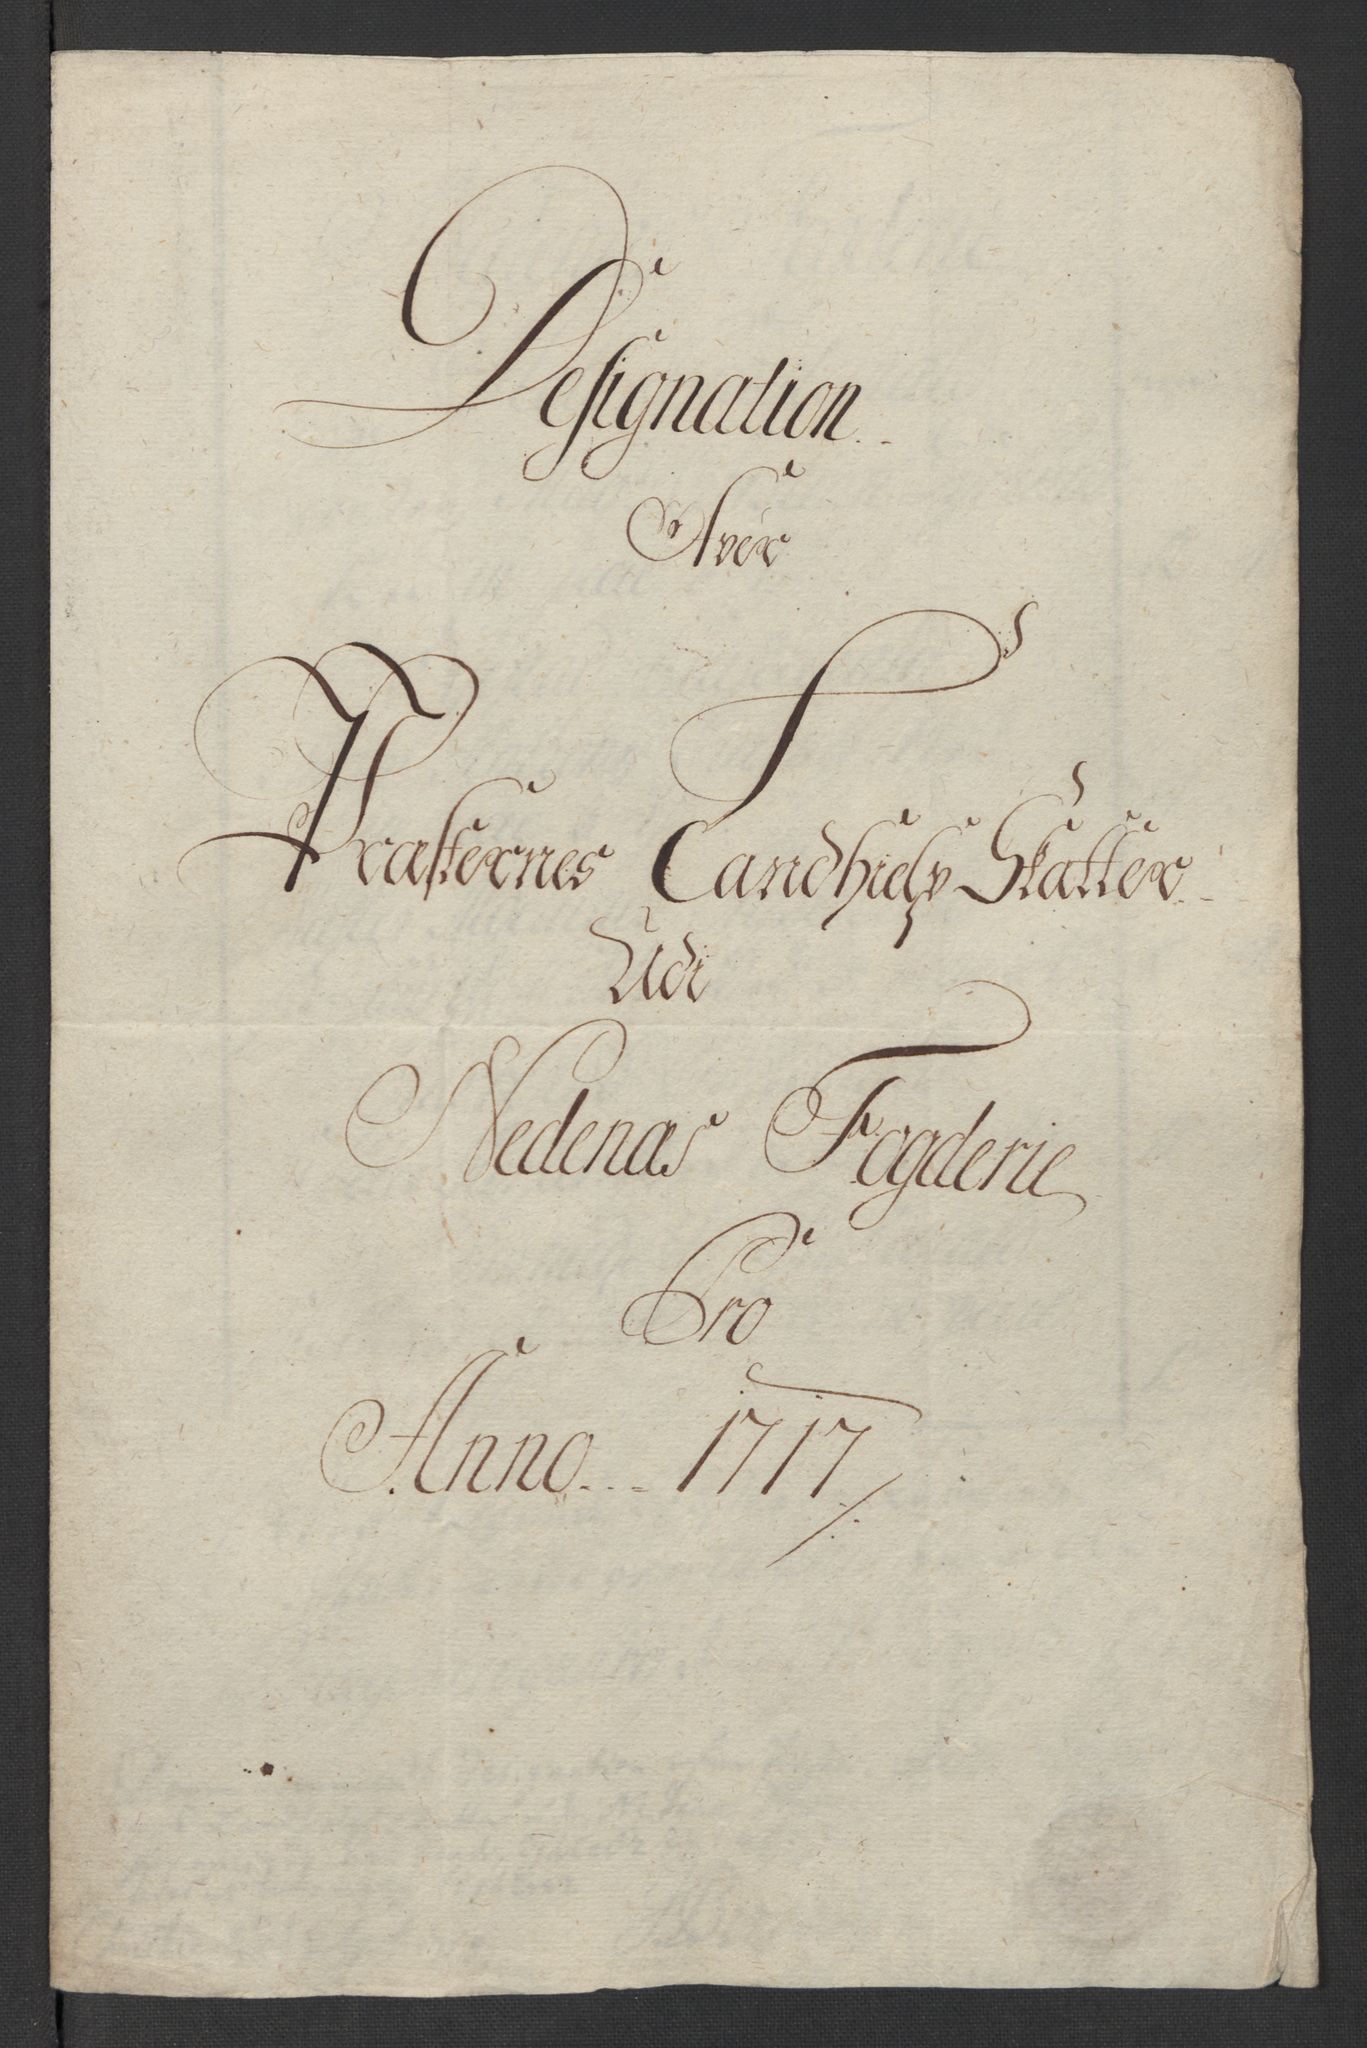 Designation
Over
Præsternes Landhielp Skatter
Udi
Nedenæs Fogderie
Pro
Anno 1717